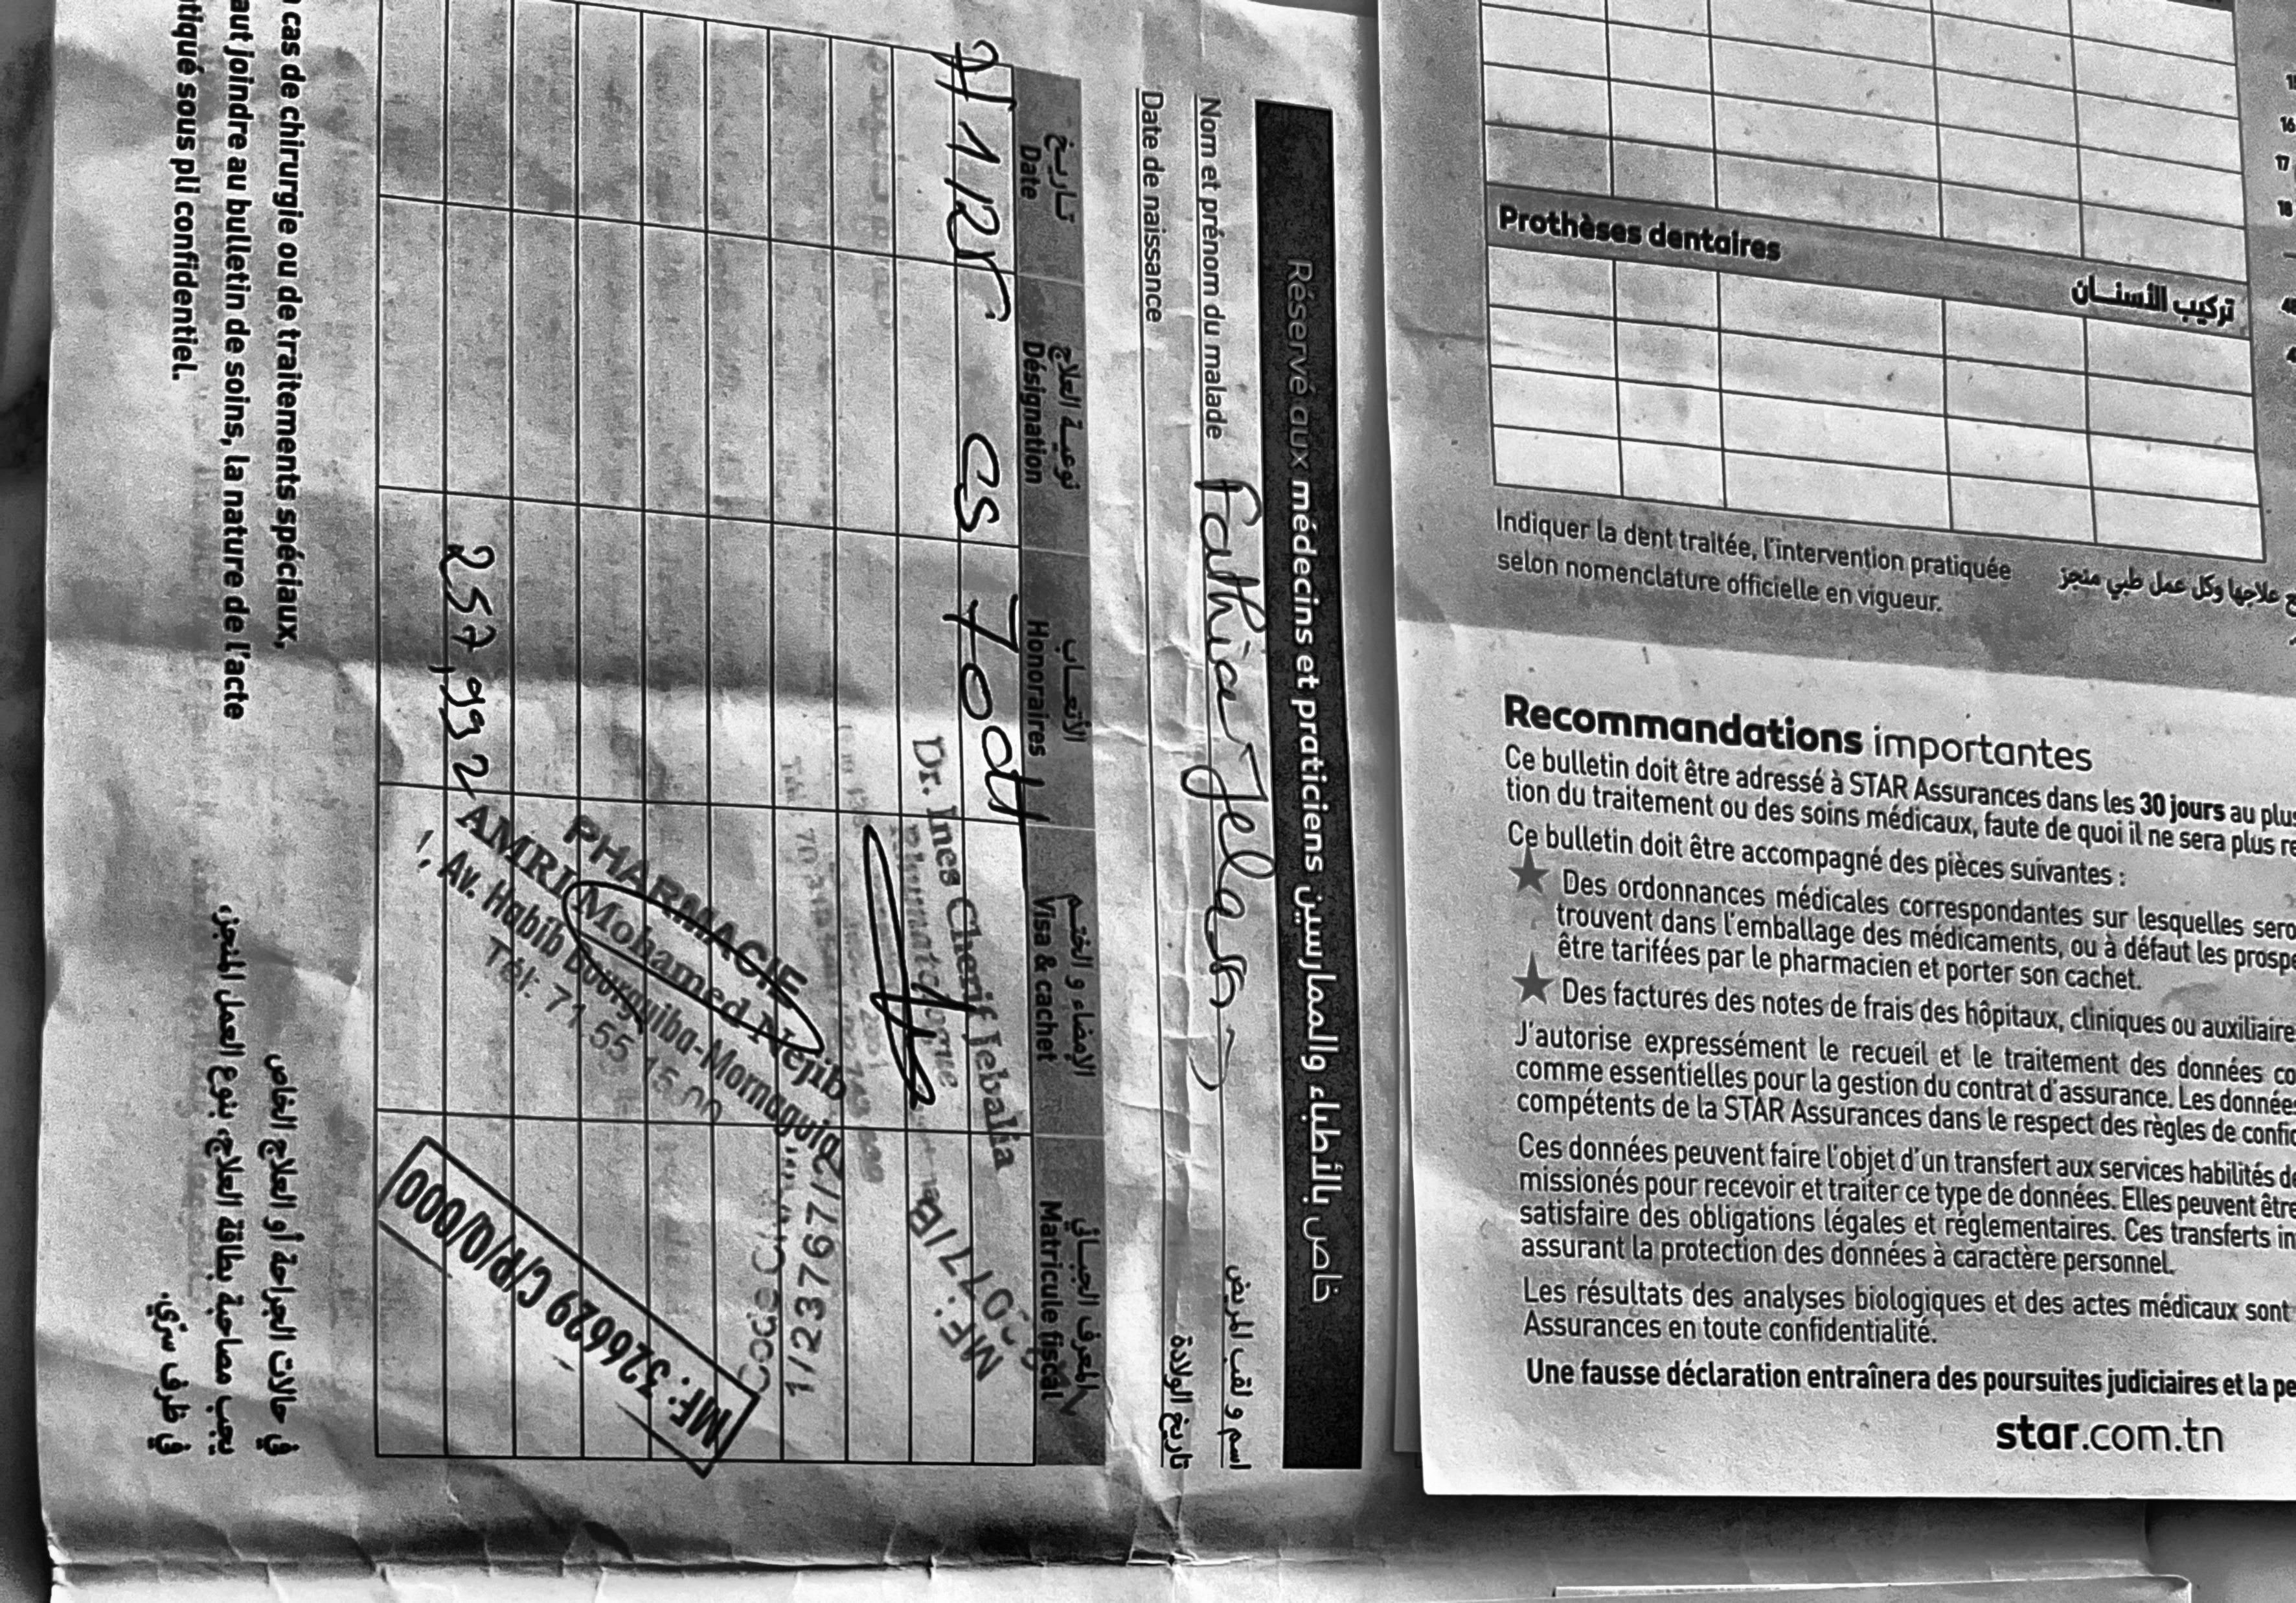 Réservé aux médecins et praticiens خاص بالأطباء والممارسين
Nom et prénom du malade Fathia Jelassi اسم و لقب المريض
Date de naissance تاريخ الولادة
تاريخ نوعية العلاج الأتعاب الإمضاء و الختم المعرف الجبائي
Date Désignation Honoraires Visa & cachet Matricule fiscal
CS 70dt
Dr. Ines Cherif Jebalia
MF:
1/23767/2
257,992
PHARMACIE
AMRI Mohamed Nejib
1, Av. Habib Bourguiba-Mornaguia
Tél: 71 55 15 00
MF: 326629 C/P/0/000
cas de chirurgie ou de traitements spéciaux,
aut joindre au bulletin de soins, la nature de l'acte
tiqué sous pli confidentiel.
في حالات الجراحة أو العلاج الخاص
يجب مصاحبة بطاقة العلاج، بنوع العمل المنجز،
في ظرف سرّي.
16
17
18
Prothèses dentaires تركيب الأسنان
Indiquer la dent traitée, l'intervention pratiquée
selon nomenclature officielle en vigueur.
علاجها وكل عمل طبي منجز
Recommandations importantes
Ce bulletin doit être adressé à STAR Assurances dans les 30 jours au plus
tion du traitement ou des soins médicaux, faute de quoi il ne sera plus re
Ce bulletin doit être accompagné des pièces suivantes :
Des ordonnances médicales correspondantes sur lesquelles sero
trouvent dans l'emballage des médicaments, ou à défaut les prospe
être tarifées par le pharmacien et porter son cachet.
Des factures des notes de frais des hôpitaux, cliniques ou auxiliaire
J'autorise expressément le recueil et le traitement des données co
comme essentielles pour la gestion du contrat d'assurance. Les donnée
compétents de la STAR Assurances dans le respect des règles de confid
Ces données peuvent faire l'objet d'un transfert aux services habilités de
missionés pour recevoir et traiter ce type de données. Elles peuvent être
satisfaire des obligations légales et réglementaires. Ces transferts in
assurant la protection des données à caractère personnel.
Les résultats des analyses biologiques et des actes médicaux sont
Assurances en toute confidentialité.
Une fausse déclaration entraînera des poursuites judiciaires et la pe
star.com.tn